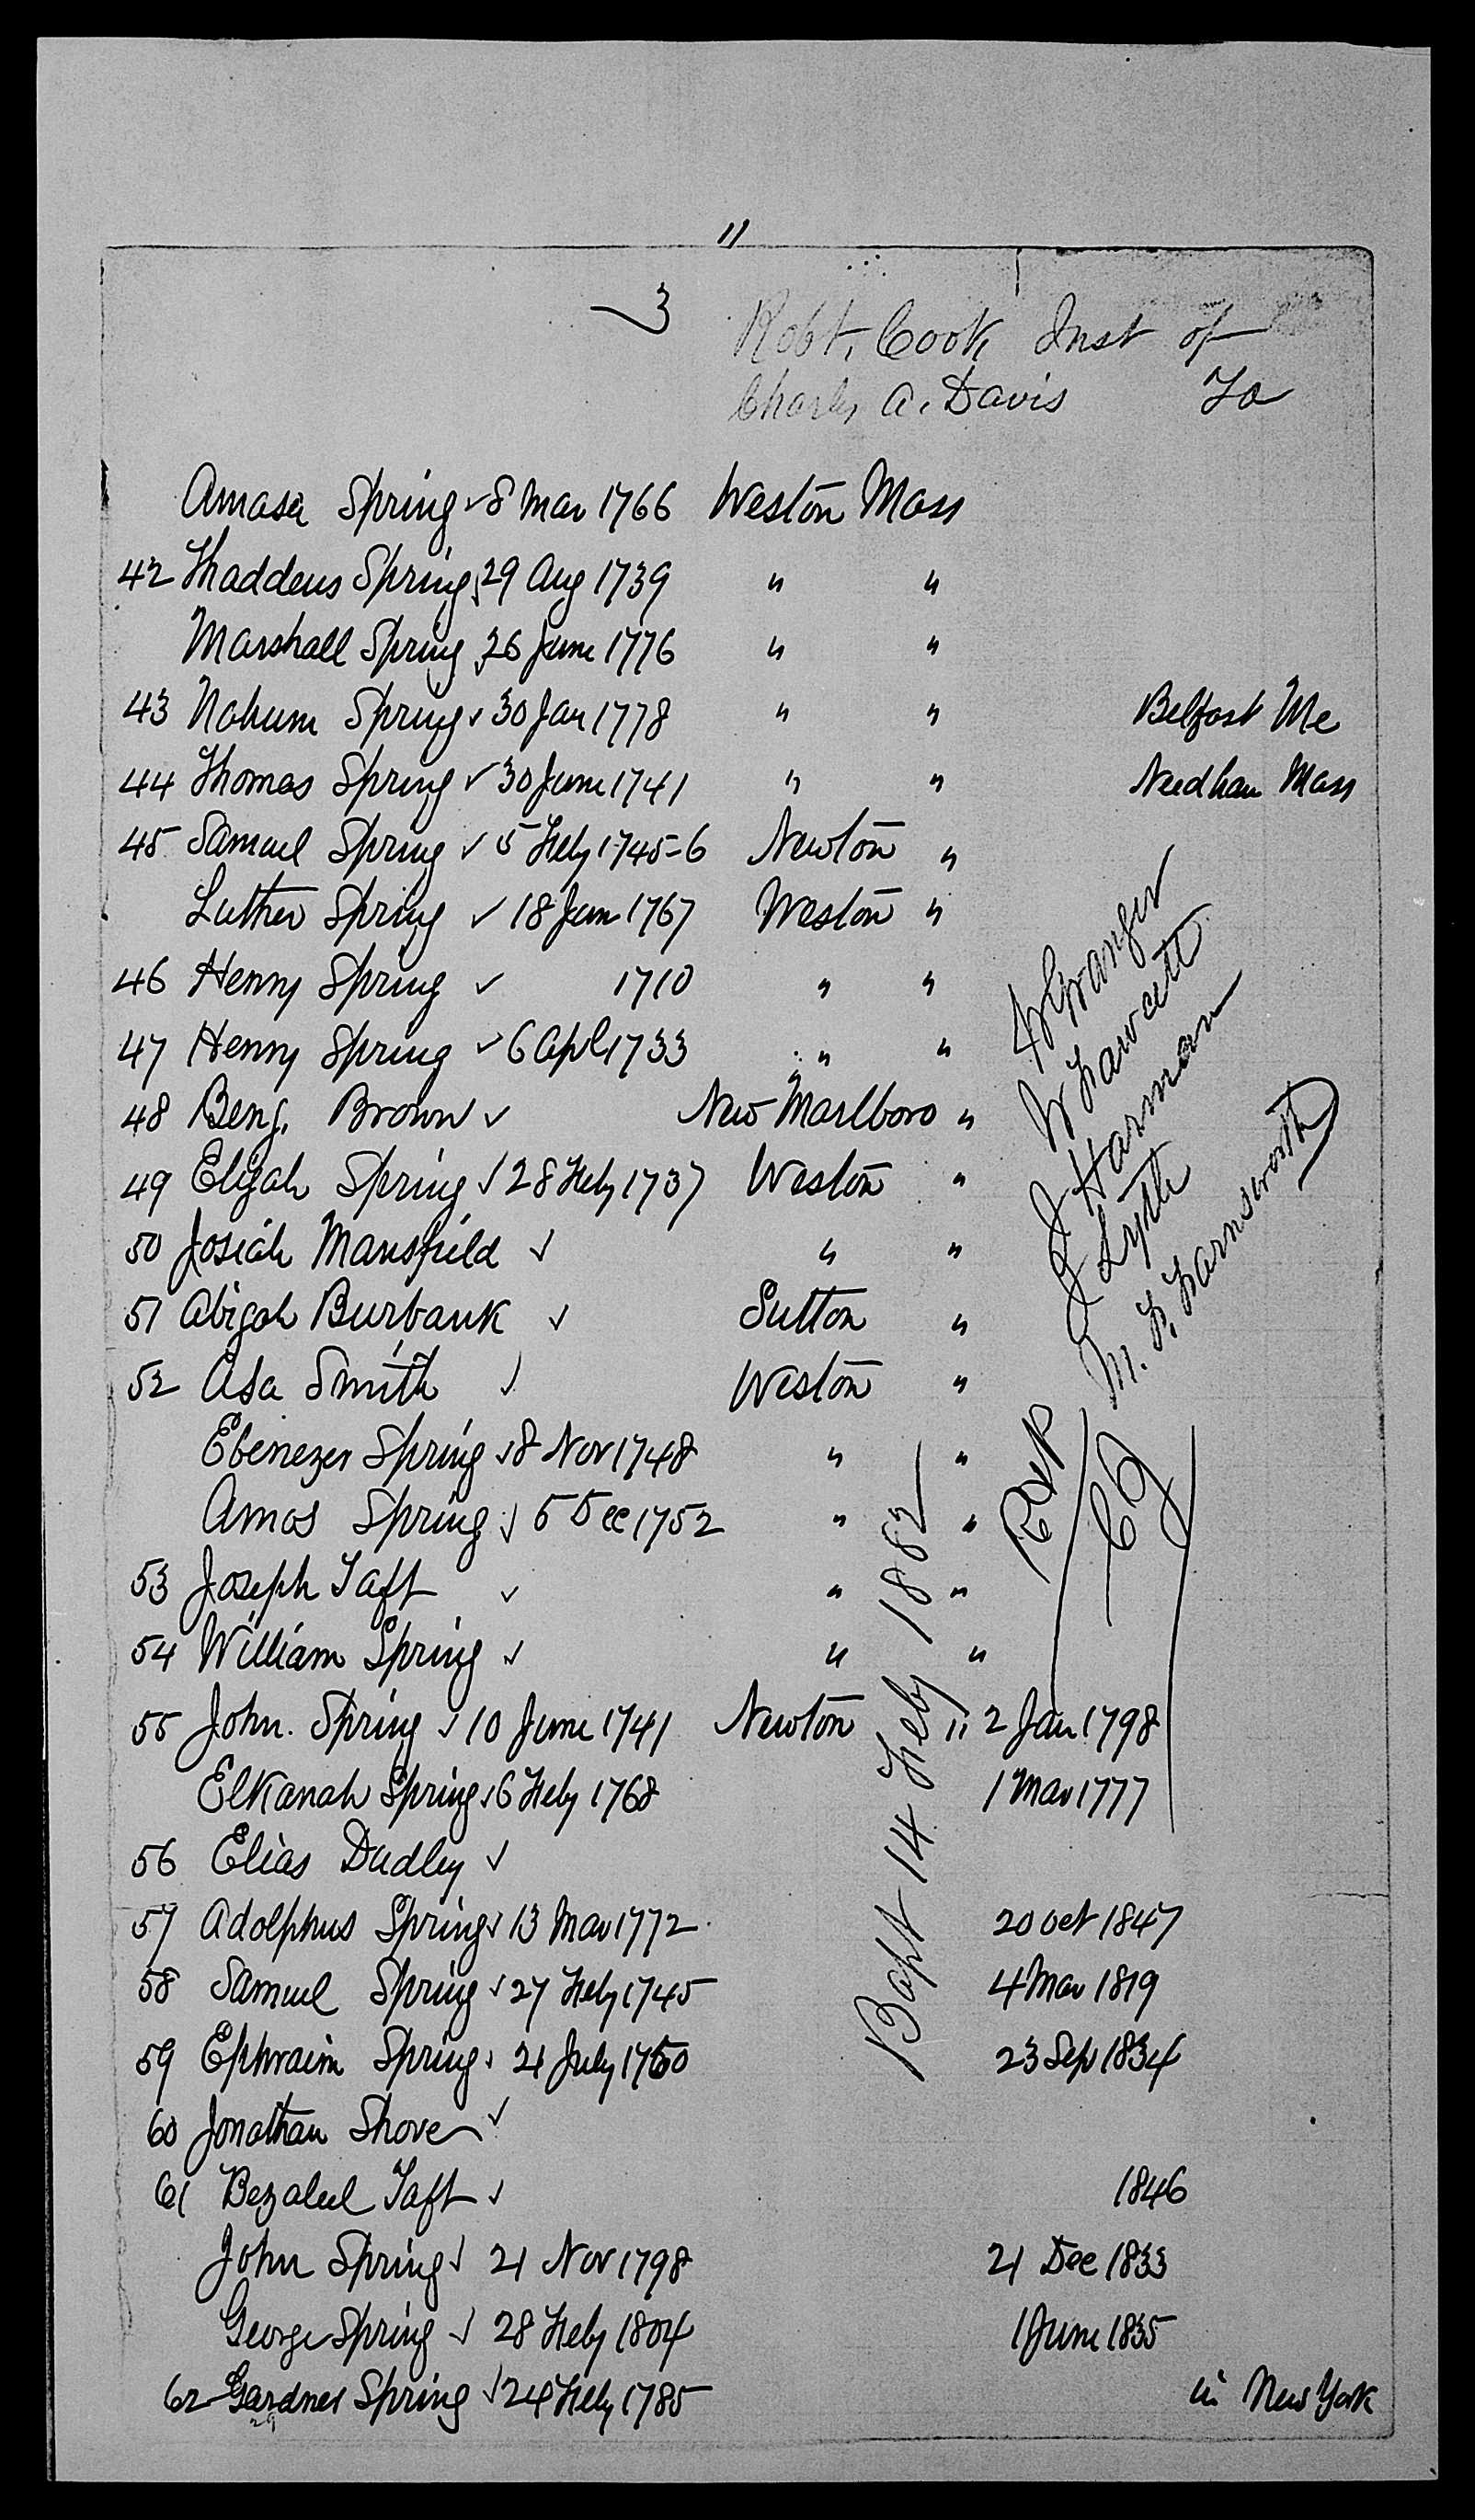 11
3
Robt. Cook Inst of
Charles A. Davis To
Amasa Spring ✓ 8 Mar 1766 Weston Mass
42 Thaddeus Spring ✓ 29 Aug 1739 " "
Marshall Spring 26 June 1776 " "
43 Nahum Spring ✓ 30 Jan 1778 " " Belfast Me
44 Thomas Spring ✓ 30 June 1741 " " Needham Mass
45 Samuel Spring ✓ 5 Feby 1745-6 Newton "
Luther Spring ✓ 18 Jan 1767 Weston "
46 Henry Spring ✓ 1710 " "
47 Henry Spring ✓ 6 Apl 1733 " "
48 Benj. Brown ✓ New Marlboro "
49 Elijah Spring ✓ 28 Feby 1737 Weston "
50 Josiah Mansfield ✓ " "
51 Abijah Burbank ✓ Sutton "
52 Asa Smith ✓ Weston "
Ebenezer Spring ✓ 8 Nov 1748 " "
Amos Spring ✓ 5 Dec 1752 " "
53 Joseph Taft ✓ " "
54 William Spring ✓ " "
55 John Spring ✓ 10 June 1741 Newton " 2 Jan 1798
Elkanah Spring ✓ 6 Feby 1768 1 Mar 1777
56 Elias Dudley ✓
57 Adolphus Spring ✓ 13 Mar 1772 20 Oct 1847
58 Samuel Spring ✓ 27 Feby 1745 4 Mar 1819
59 Ephraim Spring ✓ 21 July 1750 23 Sep 1834
60 Jonathan Shove ✓
61 Bezaleel Taft ✓ 1846
John Spring ✓ 21 Nov 1798 21 Dec 1833
George Spring ✓ 28 Feby 1804 1 June 1835
62 Gardner Spring ✓ 24 Feby 1785 in New York
29
Granger
W Fawcett
J Harman
J Lyth
M. F. Farnsworth
Bapt 14 Feby 1882